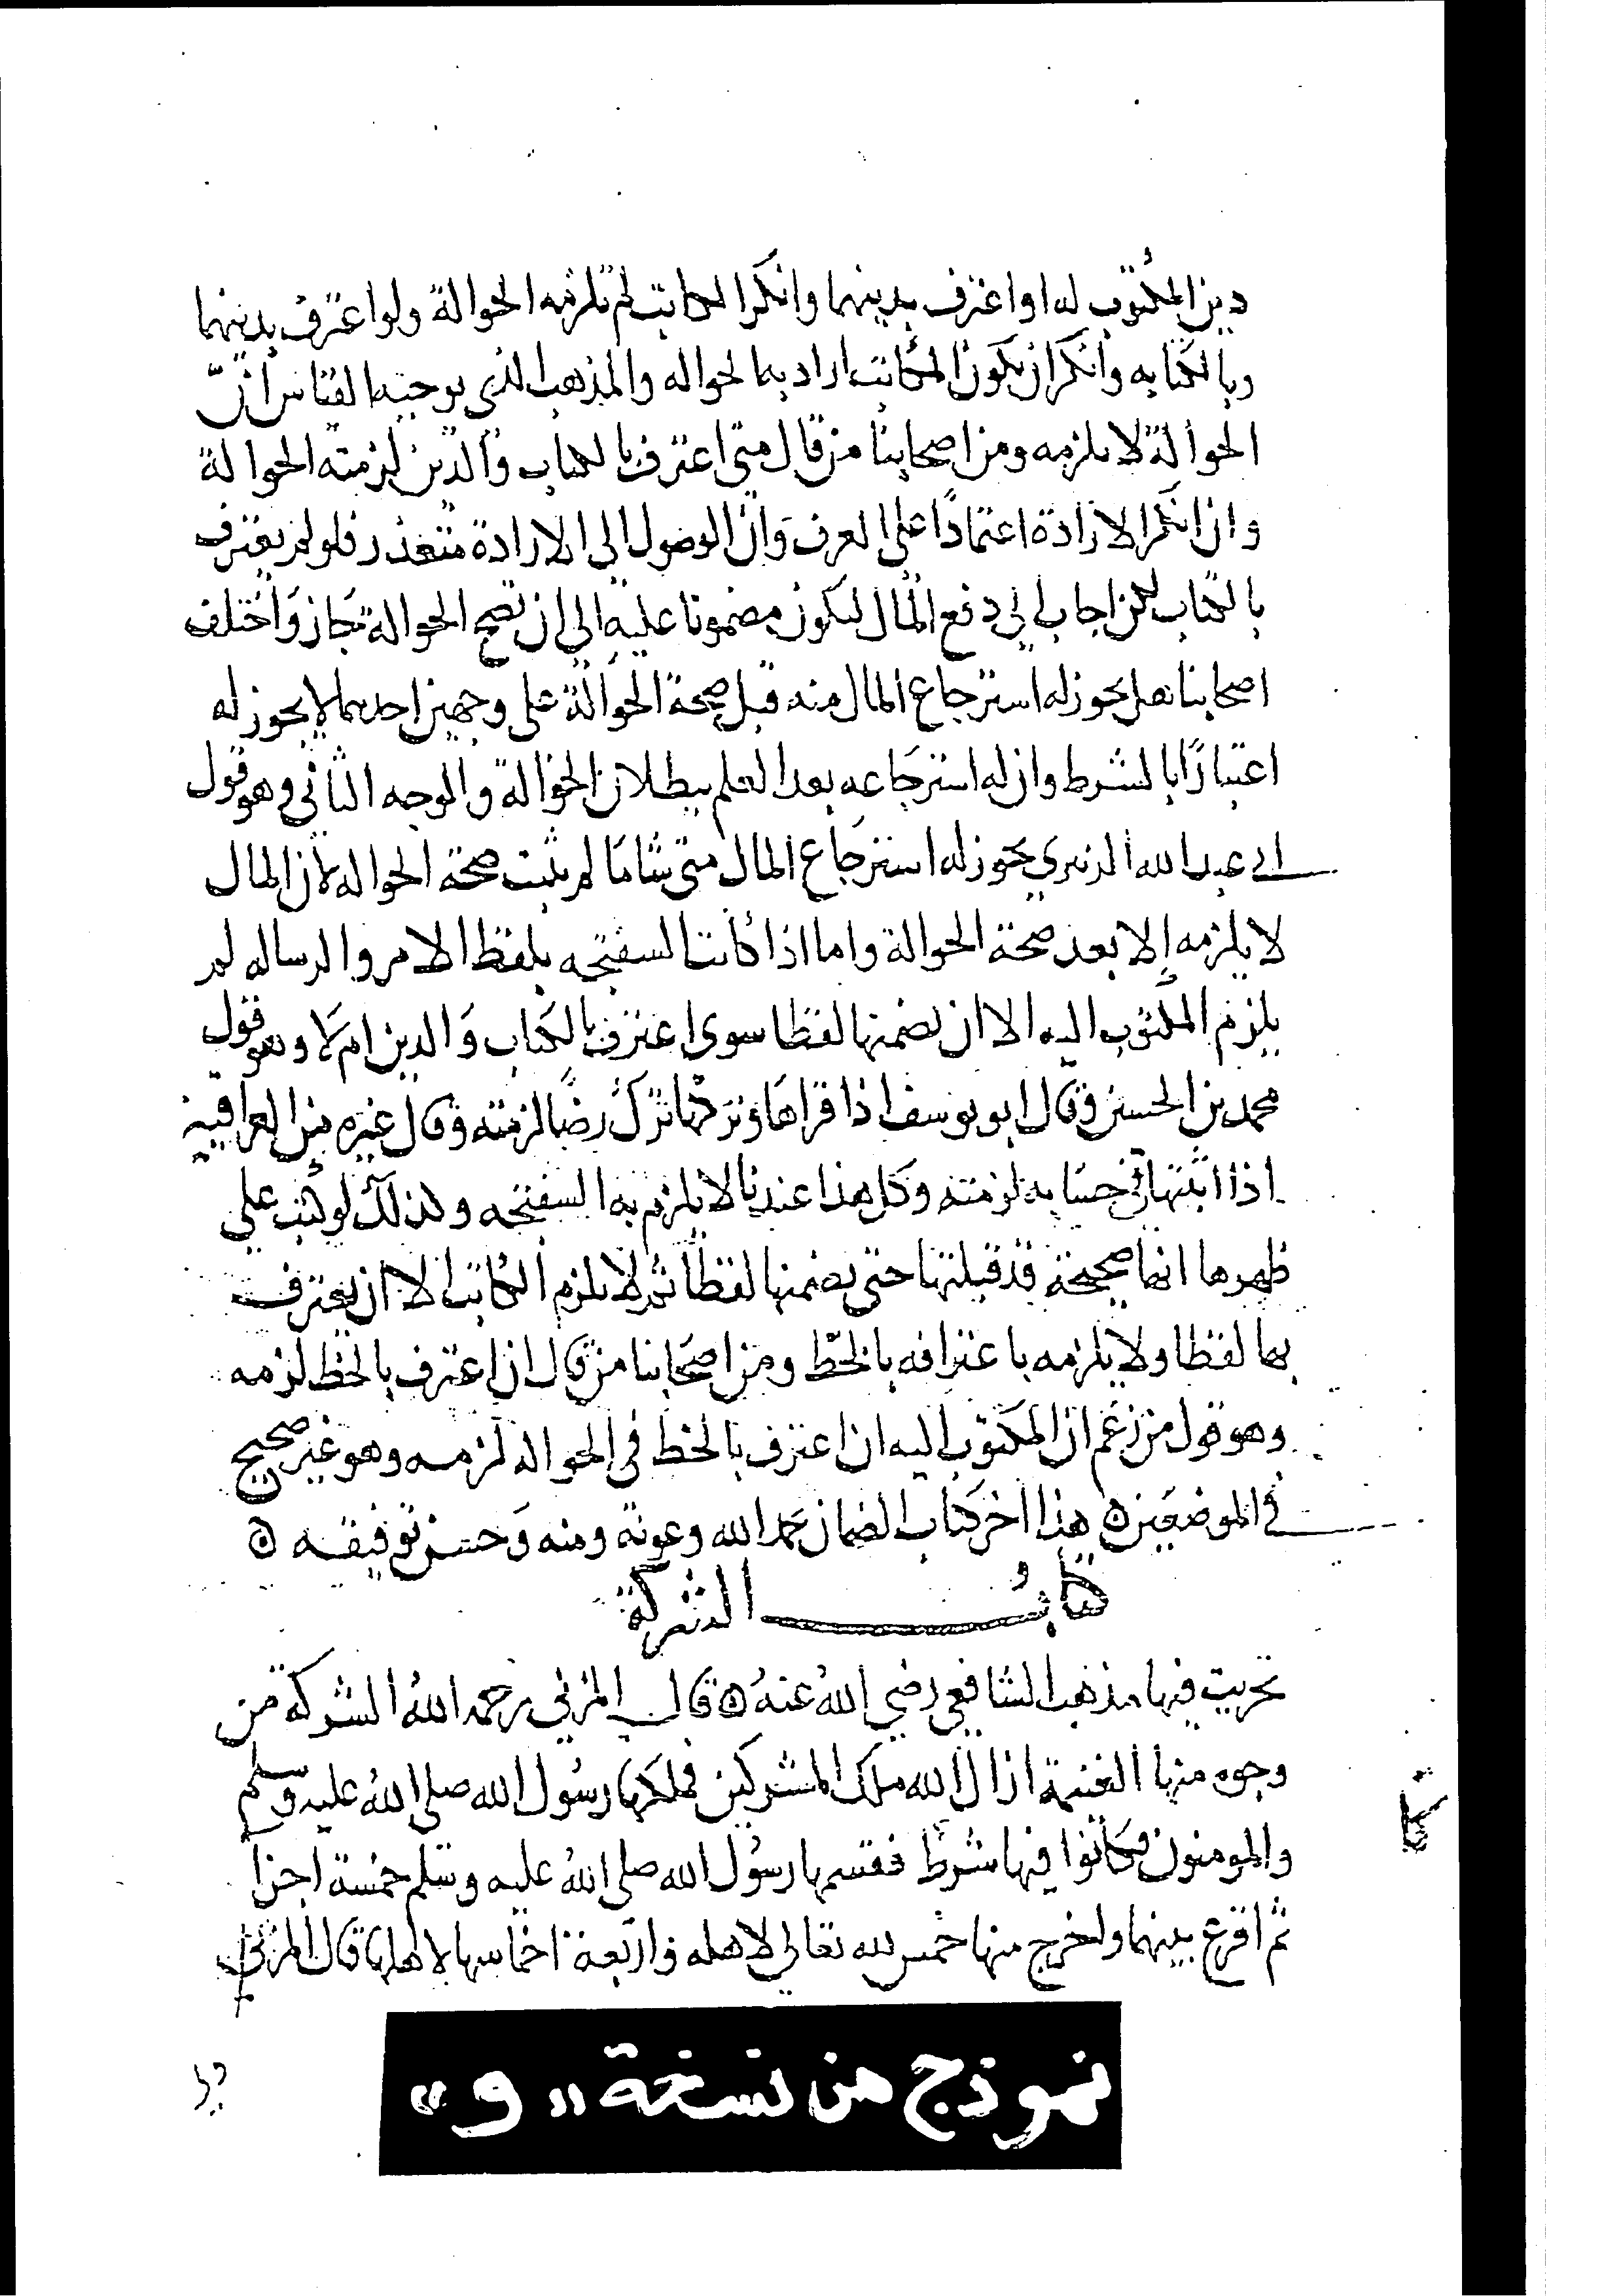 دين المكتوب له او اعترف بدينهما وانكر الكتاب لم تلزمه الحوالة ولو اعترف بدينهما
وبالكتابه وانكر ان يكون الكاتب اراد به الحواله والمذهب الذي يوجبه القياس ان
الحوالة لا تلزمه ومن اصحابنا من قال متى اعترف بالكتاب والدين لزمته الحوالة
وان انكر الارادة اعتمادًا على العرف وان الوصول الى الارادة متعذر فلو لم يعترف
بالكتاب لكن اجاب الى دفع المال ليكون مضمونا عليه الى ان تصح الحوالة جاز واختلف
اصحابنا هل يجوز له استرجاع المال منه قبل صحة الحوالة على وجهين احدهما لا يجوز له
اعتبارًا بالشرط وان له استرجاعه بعد العلم ببطلان الحوالة والوجه الثاني وهو قول
ابي عبد الله الزبيري يجوز له استرجاع المال متى شا ما لم يثبت صحة الحواله لان المال
لا يلزمه إلا بعد صحة الحوالة واما اذا كانت السفتجه بلفظ الامر والرساله لم
يلزم المكتوب اليه الا ان يضمنها لفظا سوى اعترف بالكتاب والدين ام لا وهو قول
محمد بن الحسن وقال ابو يوسف اذا قراها وتركها ترك رضًا لزمته وقال غيره من العراقيين
اذا اثبتها في حسابه لزمته وكل هذا عندنا لا يلزم به السفتجه وكذلك لو كتب على
ظهرها انها صحيحة قد قبلتها حتى يضمنها لفظًا ثم لا يلزم الكاتب الا ان يعترف
بها لفظا ولا يلزمه باعترافه بالخط ومن اصحابنا من قال ان اعترف بالخط لزمه
وهو قول من زعم ان المكتوب اليه ان اعترف بالخط في الحوالة لزمه وهو غير صحيح
في الموضعين ه هذا اخر كتاب الضمان بحمد الله وعونه ومنه وحسن توفيقه ه
كتابُ الشركة
تحريت فيها مذهب الشافعي رضي اللهُ عنهُ ه قال المزني رحمه اللهُ الشركة من
وجوه منها الغنيمة ازال الله ملك المشركين فملكها رسُول الله صلى اللهُ عليه وسلم
والمومنون فكانوا فيها شركا فقسمها رسُول الله صلى اللهُ عليه وسلم خمسة اجزا
ثم اقرع بينهما واخرج منها خمس لله تعالى لاهله واربعة اخماسها لاهلها قال المزني
نموذج من نسخة « و »